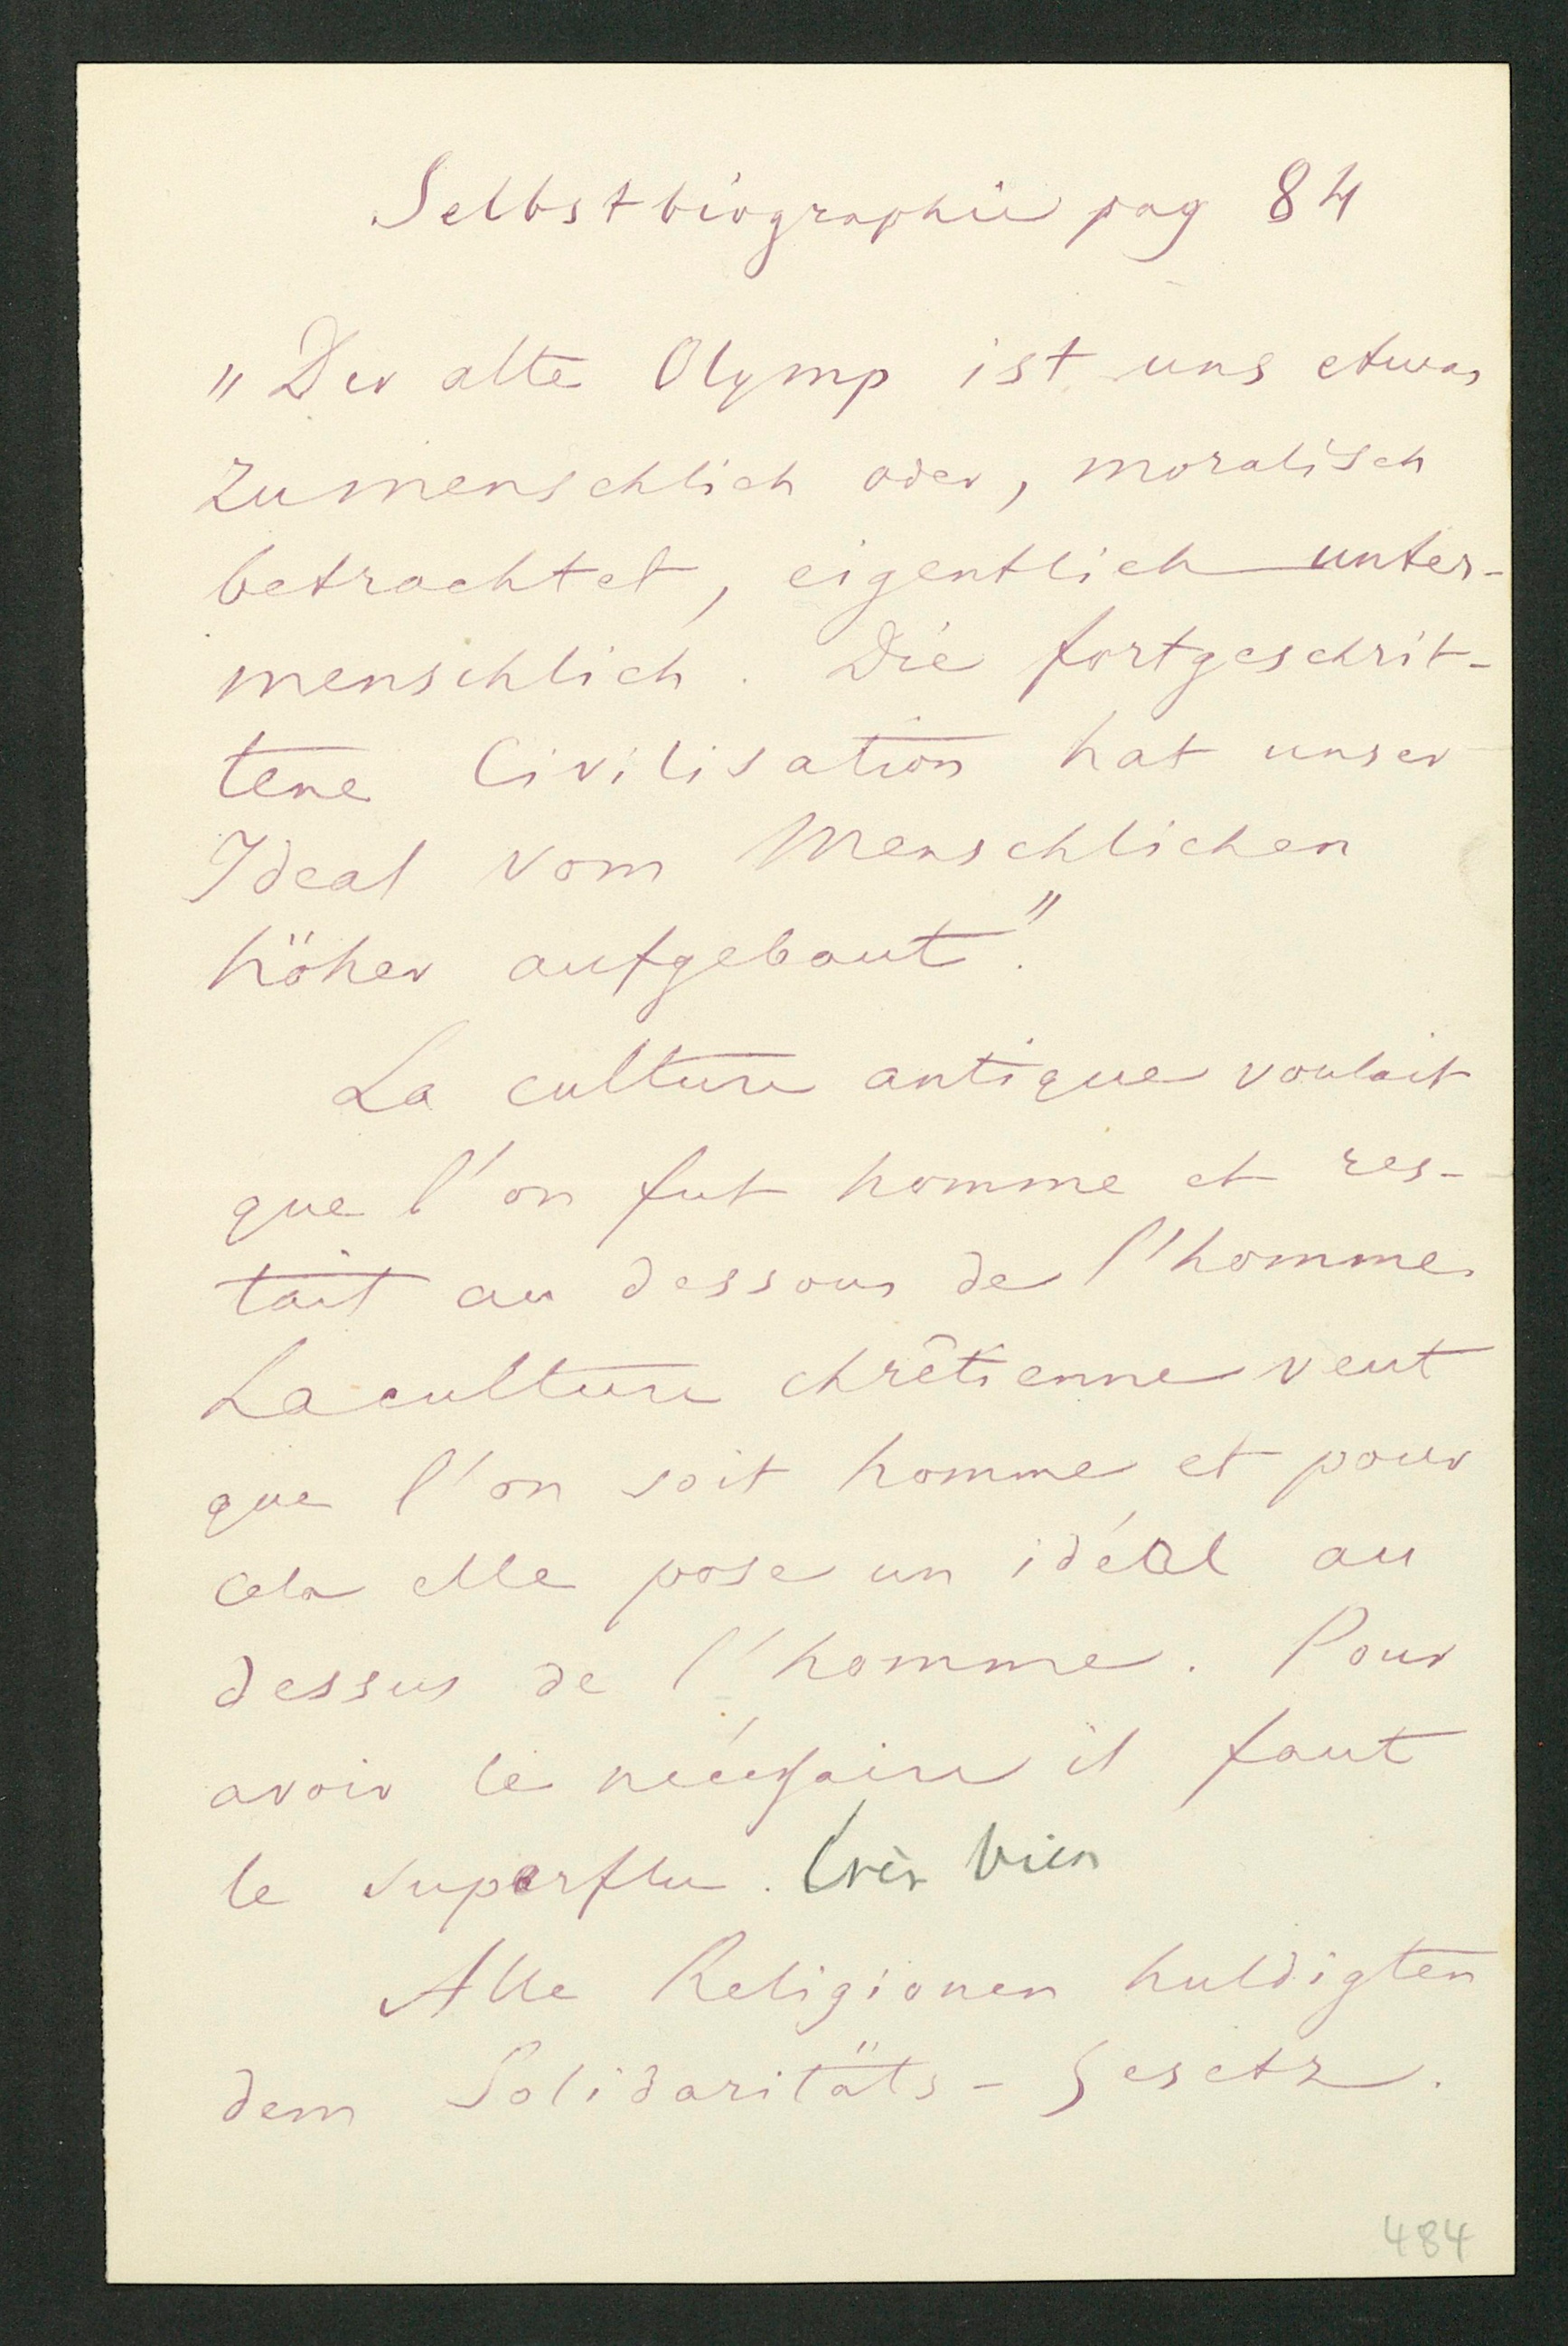 Selbstbiographie pag 84
„Der alte Olymp ist uns etwas
zumenschlich oder, moralisch
betrachtet, eigentlich unter-
menschlich. Die fortgeschrit-
tene Civilisation hat unser
Ideal vom Menschlichen
höher aufgebaut."
La culture antique voulait
que l'on fut homme et res-
tait au dessous de l'homme.
La culture chrêtienne veut
que l'on soit homme et pour
cela elle pose un idéal au
dessus de l'homme. Pour
avoir le nécessaire il faut
le superflu. Très bien
Alle Religionen huldigten
dem Solidaritäts-Gesetz.
484